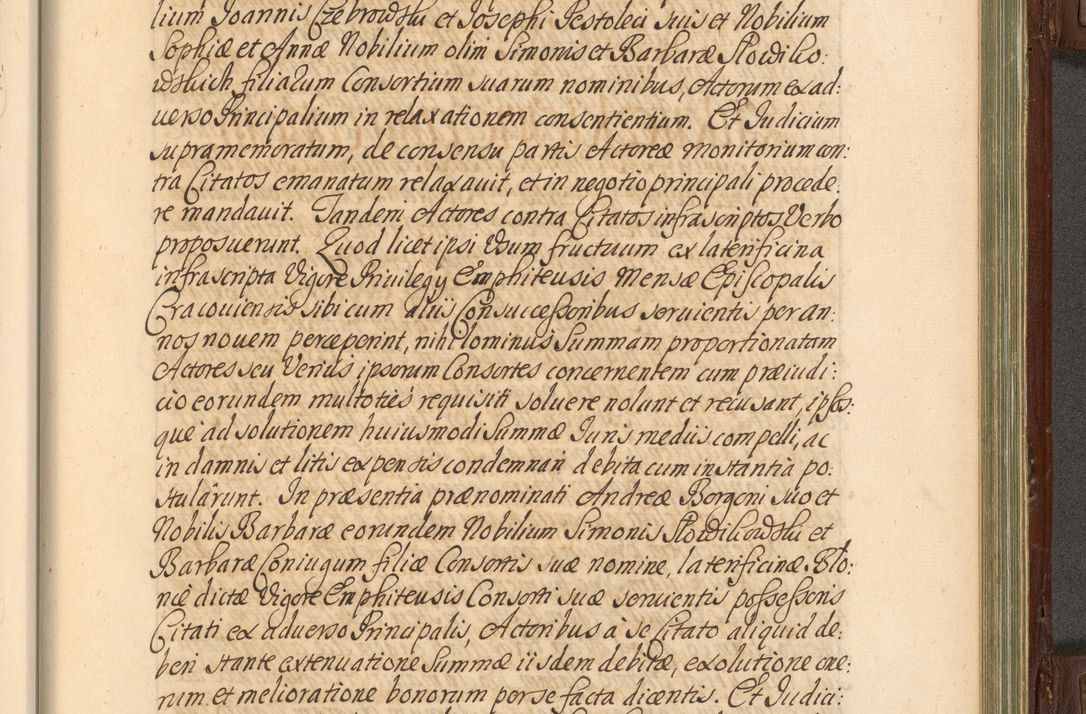 lium Joannis Czebrowski et Josephi Pestoleci suis et Nobilium
Sophiæ et Annæ Nobilium olim Simonis et Barbaræ
filiarum Consortium suarum nominibus, Actorum ex ad:
uerso Principalium in relaxationem consentientium. Et Judicium
supramemoratum, de consensu partis Actoreæ monitorium con:
tra Citatos emanatum relaxauit, et in negotio principali procede:
re mandauit. Tandem Actores contra Citatos infrascriptos Verbo
proposuerunt. Quod licet ipsi Vsum fructuum ex laterificina
infrascripta Vigore Priuilegÿ Emphiteusis Mensæ Episcopalis
Cracouiensis sibi cum aliis Consuccessoribus seruientis per an:
nos nouem perceperint, nihilominus Summam proportionatam
Actores seu Verius ipsorum Consortes concernentem cum præiudi:
cio eorundem multoties requisiti soluere nolunt et recusant, ipsos:
que ad solutionem huiusmodi Summæ Juris mediis compelli, ac
in damnis et litis expensis condemnari debita cum instantia po:
stulârunt. In præsentia prænominati Andreæ Borgoni suo et
Nobilis Barbaræ eorundem Nobilium Simonis et
Barbaræ Coniugum filiæ Consortis suæ nomine, laterificinæ Blo:
nie dictæ Vigore Emphiteusis Consorti suæ seruientis possessoris
Citati ex aduerso Principalis, Actoribus à se Citato aliquid de:
beri stante extenuatione Summæ iisdem debitæ, exolutione one:
rum et melioratione bonorum per se facta dicentis. Et Judici: